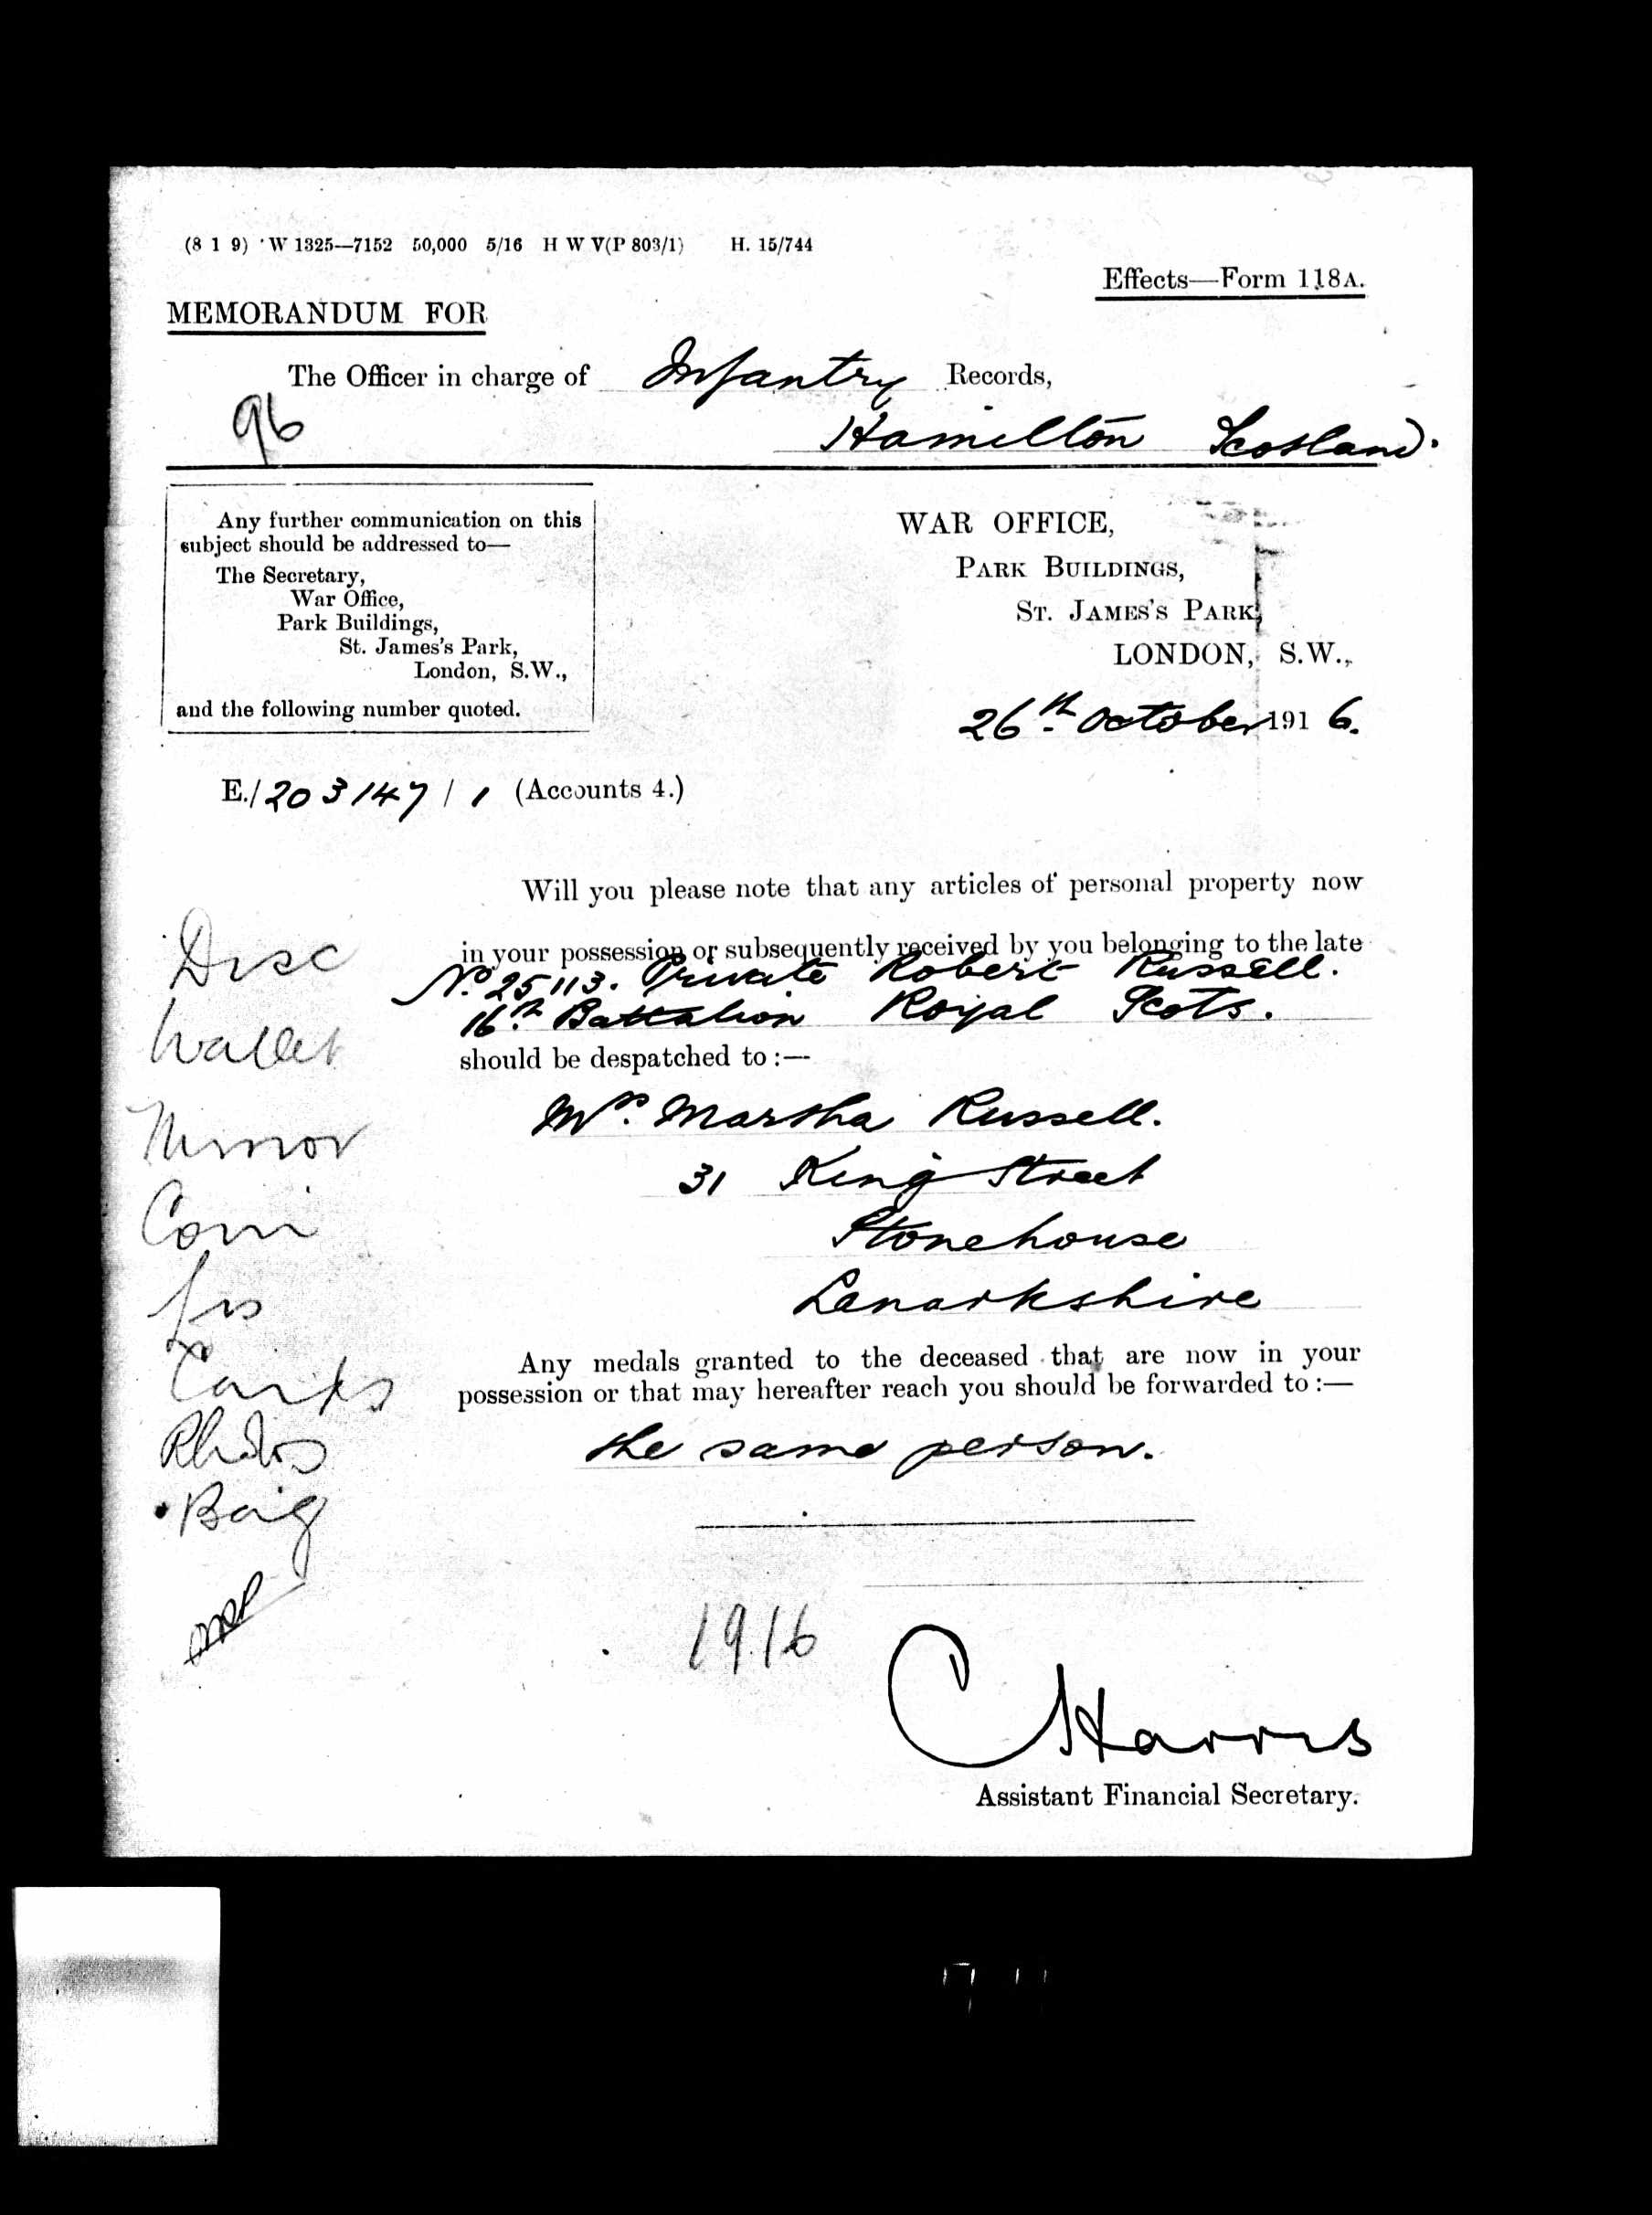 (8 1 9) W 1325—7152 50,000 5/16 H W V(P 803/1) H. 15/744
Effects—Form 118A.
MEMORANDUM FOR
The Officer in charge of Infantry Records,
96
Hamilton Scotland.
Any further communication on this
subject should be addressed to—
The Secretary,
War Office,
Park Buildings,
St. James's Park,
London, S.W.,
and the following number quoted.
WAR OFFICE,
PARK BUILDINGS,
ST. JAMES'S PARK,
LONDON, S.W.,
26th October 1916.
E./203147/1 (Accounts 4.)
Will you please note that any articles of personal property now
in your possession or subsequently received by you belonging to the late
No. 25113. Private Robert Russell.
16th Battalion Royal Scots.
should be despatched to :—
Mrs. Marsha Russell.
31 King Street
Stonehouse
Lanarkshire
Any medals granted to the deceased that are now in your
possession or that may hereafter reach you should be forwarded to :—
the same person.
Disc
Wallet
Mirror
Coin
Cards
Photos
Bag
1916
C Harris
Assistant Financial Secretary.